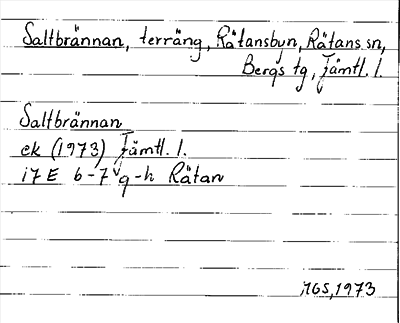 Saltbrännan, terräng, Rätansbyn, Rätans sn,
Bergs tg, Jämtl. l.
Saltbrännan
ek (1973) Jämtl. l.
17 E 6-7 g-h Rätan
1973